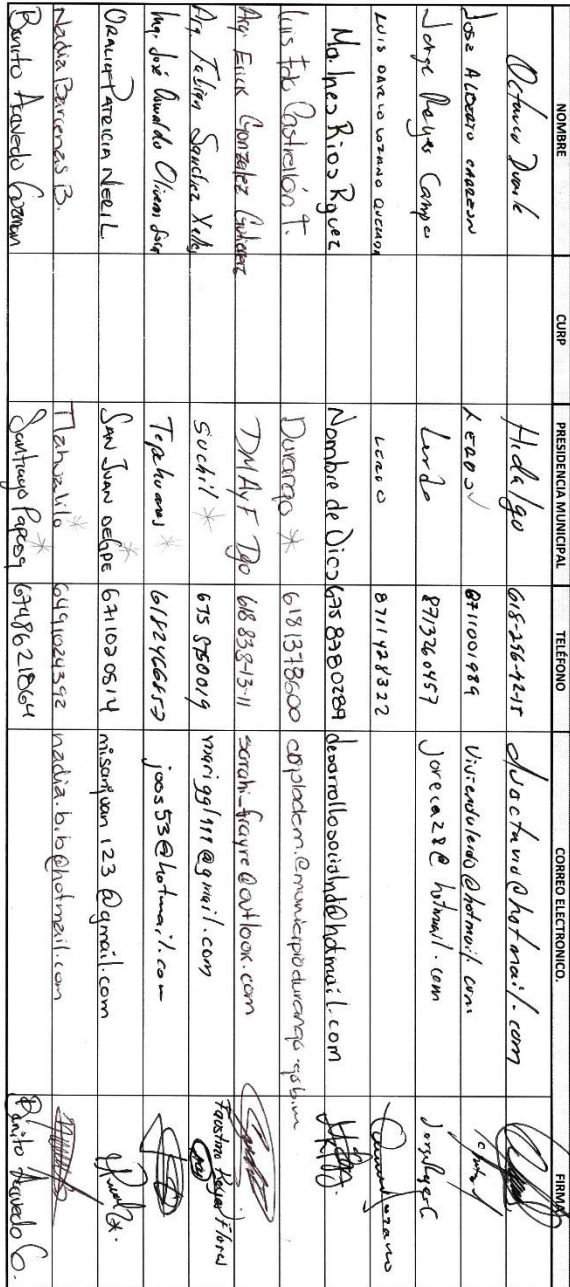 NOMBRE CURP PRESIDENCIA MUNICIPAL TELÉFONO CORREO ELECTRONICO. FIRMA
Octavio Duarte Hidalgo 618-256-42-15 dvoctavio@hotmail.com
JOSE ALBERTO CARREON LERDO 8711001989 Viviendalerdo@hotmail.com
Jorge Reyes Campos Lerdo 8713760457 joreca28@hotmail.com Jorge Reyes C
LUIS DARIO LOZANO QUEZADA LERDO 8711428322
Ma. Ines Rios Rguez Nombre de Dios 675 8780289 desarrollosocialnd@hotmail.com
Luis Fdo Castrellón T. Durango * 6181378600 copladem@municipiodurango.gob.mx
Arq. Erick Gonzalez Gutierrez DMAyF Dgo 618 838-13-11 sarahi_frayre@outlook.com
Arq. Fabian Sanchez Suchil * 675 8750019 mariggl999@gmail.com Faustino Reyes Flores
Ing. José Oswaldo Tepehuanes * 6182466857 joos53@hotmail.com
ORALIA PATRICIA NERI L. SAN JUAN DE GPE * 6711020514 misanjuan123@gmail.com
Nadia Barcenas B. Tlahualilo * 6491024392 nadia.b.b@hotmail.com
Benito Acevedo Guzman Santiago Papasq 6748621864 Benito Acevedo G.